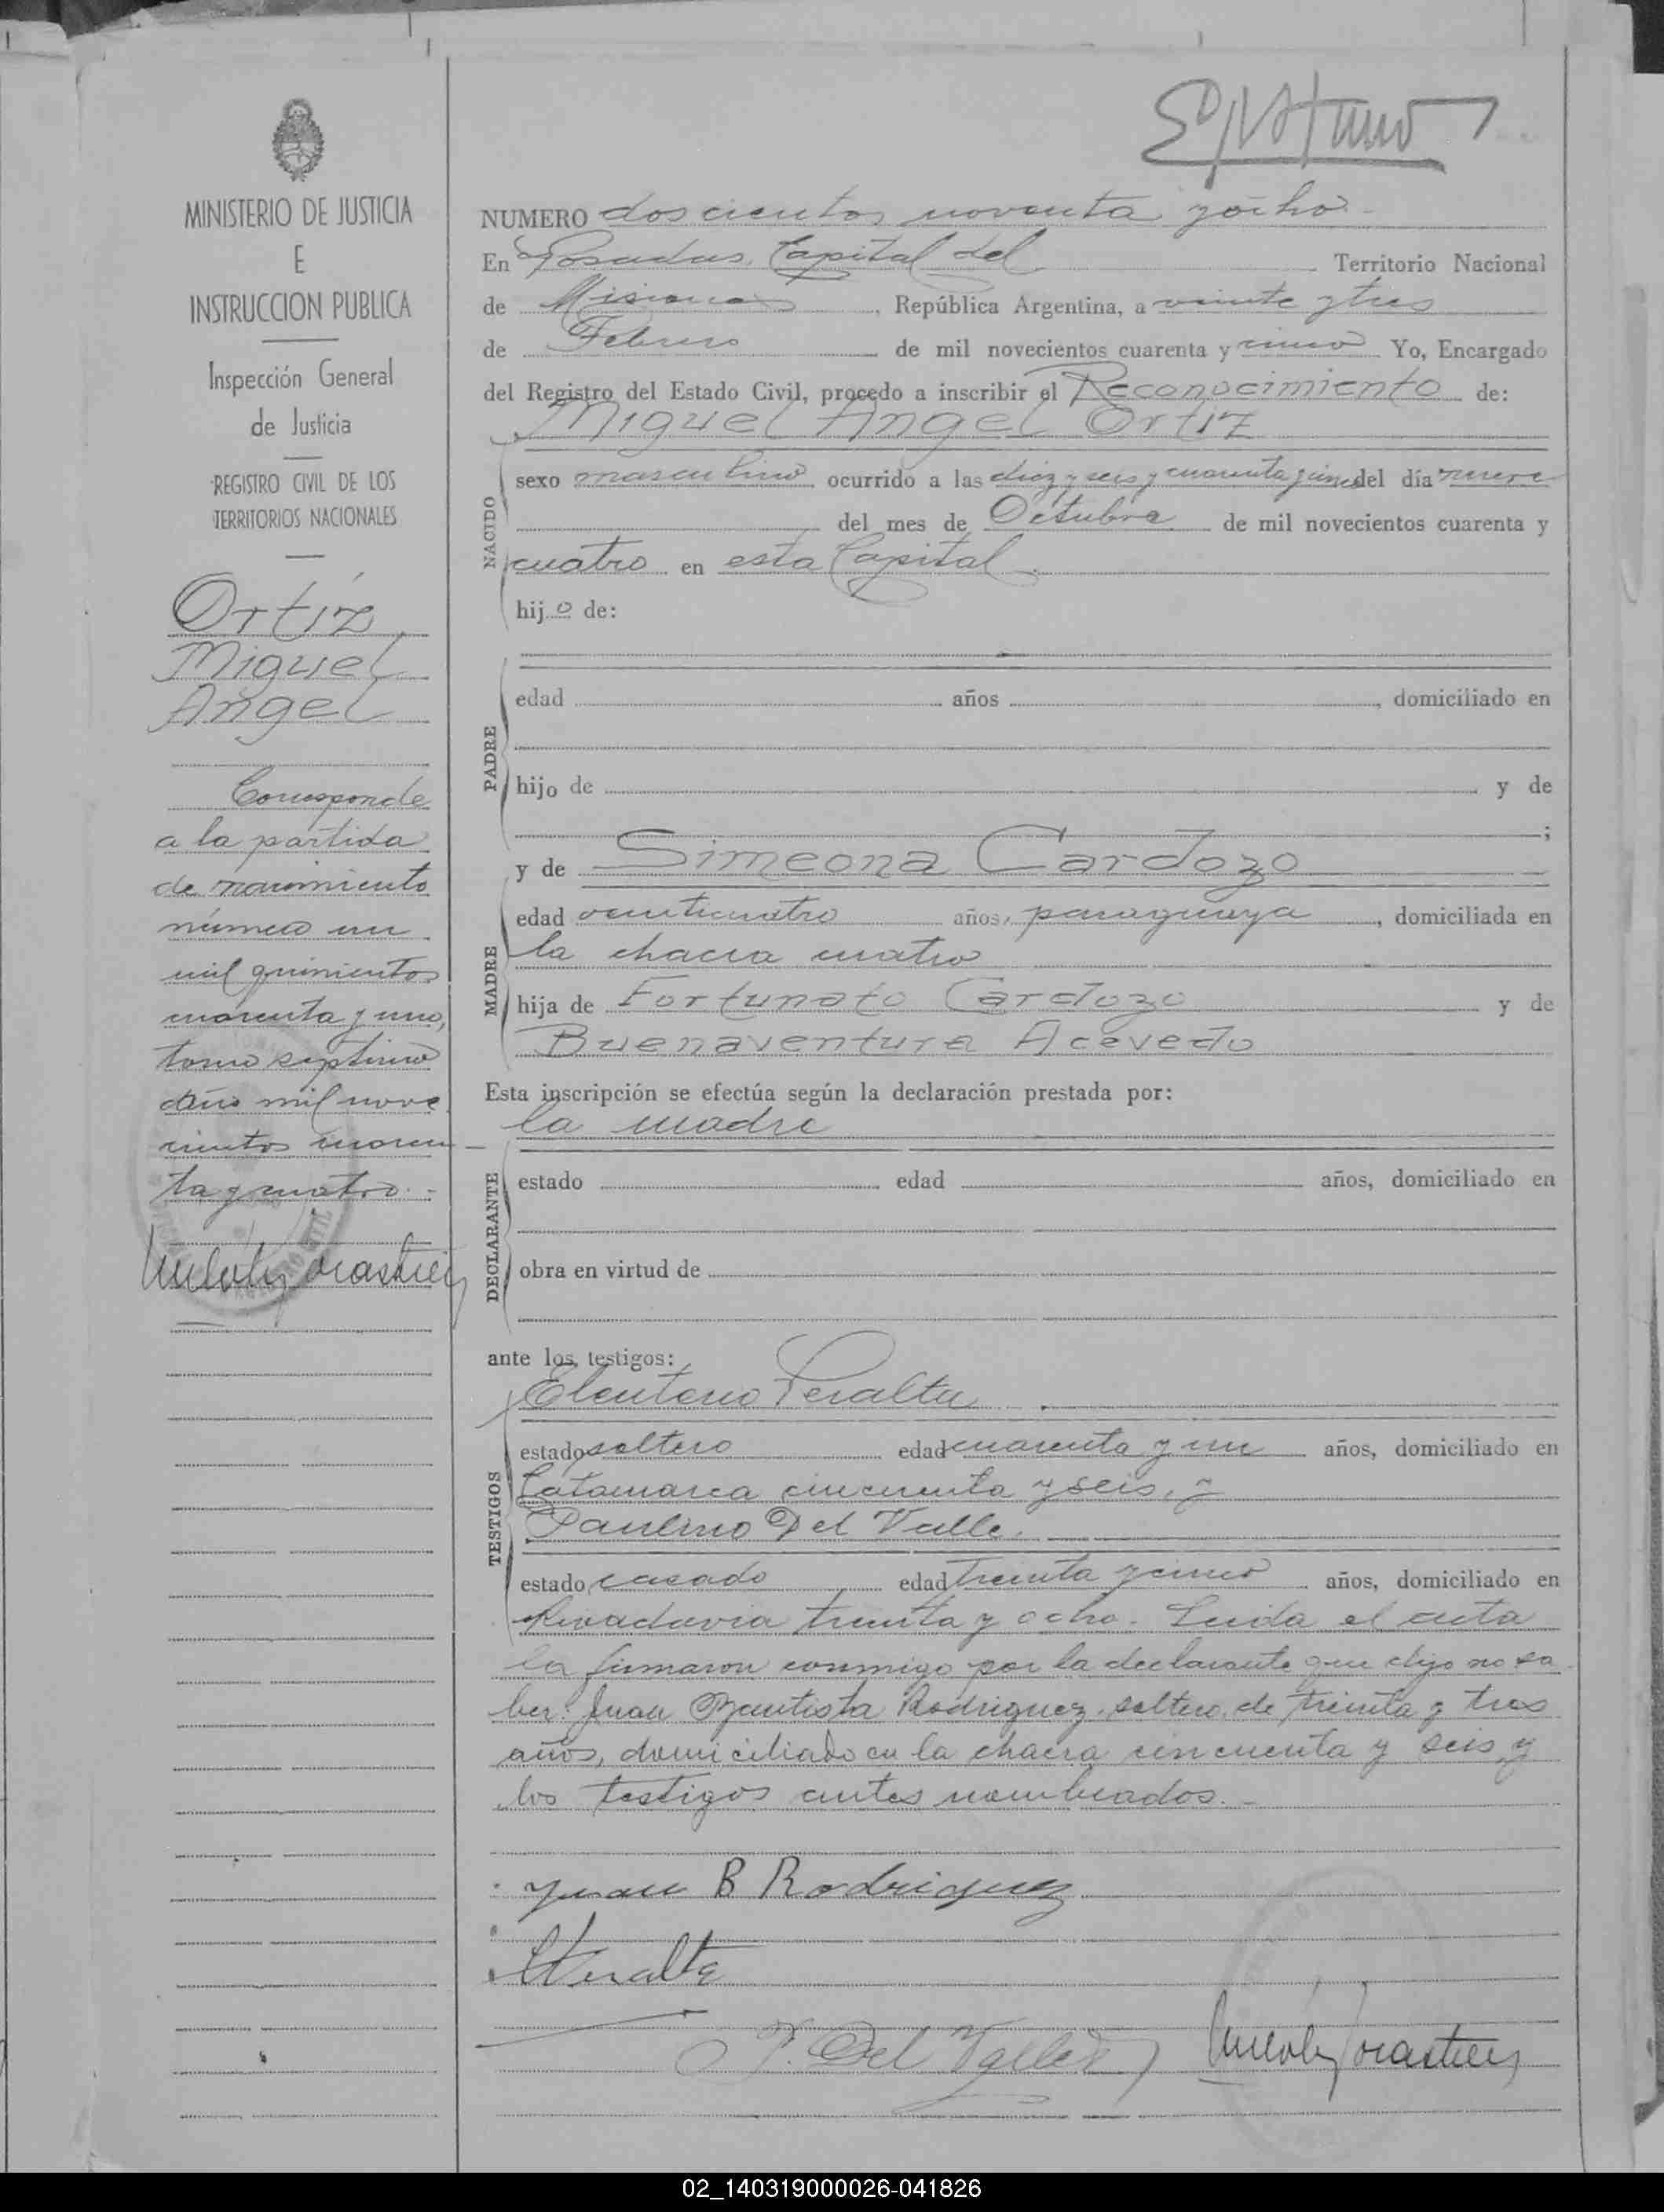 MINISTERIO DE JUSTICIA
E
INSTRUCCION PUBLICA
Inspección General
de Justicia
REGISTRO CIVIL DE LOS
TERRITORIOS NACIONALES
Ortiz
Miguel
Angel
Corresponde
a la partida
de nacimiento
número un
mil quinientos
cuarenta y uno,
tomo septimo
año mil nove
cientos cuaren
ta y cuatro.-
NUMERO doscientos noventa y ocho-
En Posadas, Capital del Territorio Nacional
de Misiones, República Argentina, a veinte y tres
de Febrero de mil novecientos cuarenta y cinco Yo, Encargado
del Registro del Estado Civil, procedo a inscribir el Reconocimiento de:
Miguel Angel Ortiz
NACIDO
sexo masculino ocurrido a las diez y seis y cuarenta y cinco del día nueve
del mes de Octubre de mil novecientos cuarenta y
cuatro en esta Capital
hijo de:
PADRE
edad años , domiciliado en
hijo de y de
;
y de Simeona Cardozo
MADRE
edad veinticuatro años, paraguaya, domiciliada en
la chacra cuatro
hija de Fortunato Cardozo y de
Buenaventura Acevedo
Esta inscripción se efectúa según la declaración prestada por:
la madre
DECLARANTE
estado edad años, domiciliado en
obra en virtud de
ante los testigos:
Eleuterio Peralta
TESTIGOS
estado soltero edad cuarenta y un años, domiciliado en
Catamarca cincuenta y seis, y
Paulino Del Valle.
estado casado edad treinta y cinco años, domiciliado en
Rivadavia treinta y ocho. Leida el acta
la firmaron conmigo por la declarante que dijo no sa
ber: Juan Bautista Rodriguez, soltero, de treinta y tres
años, domiciliado en la chacra cincuenta y seis, y
los testigos antes nombrados.-
Juan B Rodriguez
EPeralta
P. Del Valle
02_140319000026-041826